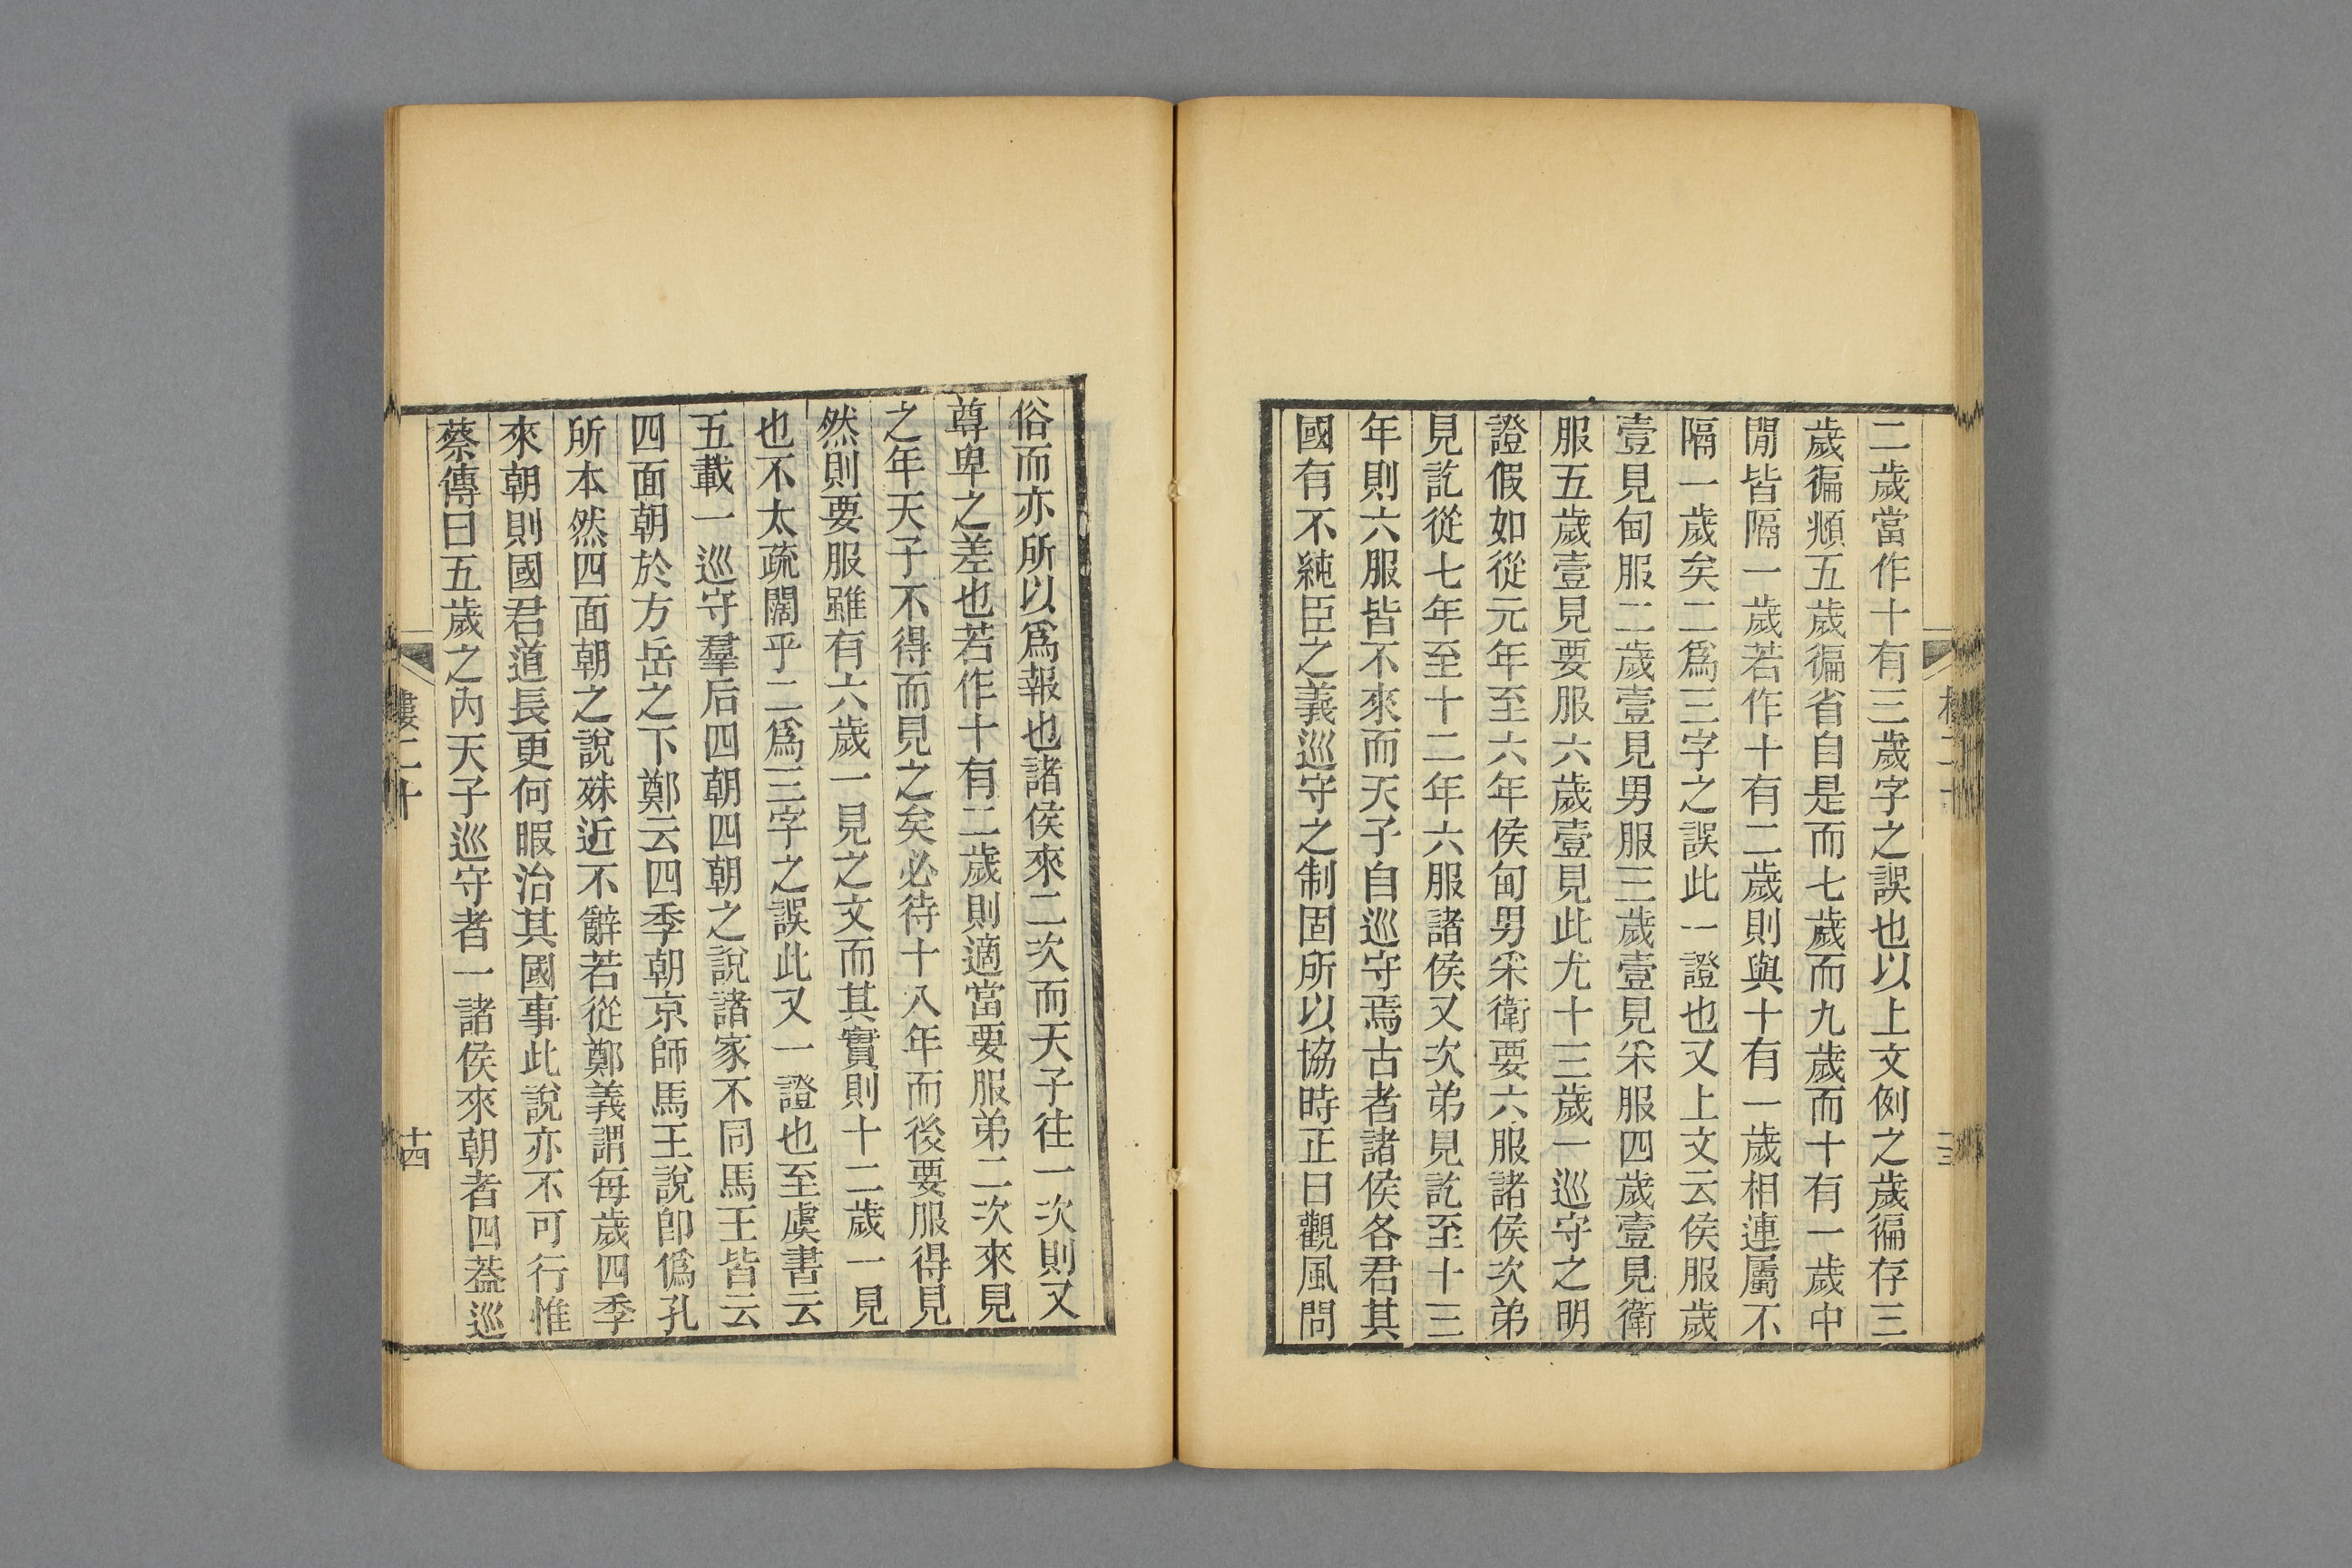 二歲當作十有三歲字之誤也以上文例之歲徧存三
歲徧頫五歲徧省自是而七歲而九歲而十有一歲中
閒皆隔一歲若作十有二歲則與十有一歲相連屬不
隔一歲矣二爲三字之誤此一證也又上文云侯服歲
壹見甸服二歲壹見男服三歲壹見采服四歲壹見衛
服五歲壹見要服六歲壹見此尤十三歲一巡守之明
證假如從元年至六年侯甸男采衛要六服諸侯次弟
見訖從七年至十二年六服諸侯又次弟見訖至十三
年則六服皆不來而天子自巡守焉古者諸侯各君其
國有不純臣之義巡守之制固所以協時正日觀風問
俗而亦所以爲報也諸侯來二次而天子往一次則又
尊卑之差也若作十有二歲則適當要服弟二次來見
之年天子不得而見之矣必待十八年而後要服得見
然則要服雖有六歲一見之文而其實則十二歲一見
也不太疏闊乎二爲三字之誤此又一證也至虞書云
五載一巡守羣后四朝四朝之說諸家不同馬王皆云
四面朝於方岳之下鄭云四季朝京師馬王說卽僞孔
所本然四面朝之說殊近不辭若從鄭義謂每歲四季
來朝則國君道長更何暇治其國事此說亦不可行惟
蔡傳曰五歲之內天子巡守者一諸侯來朝者四葢巡
樓二十
十四